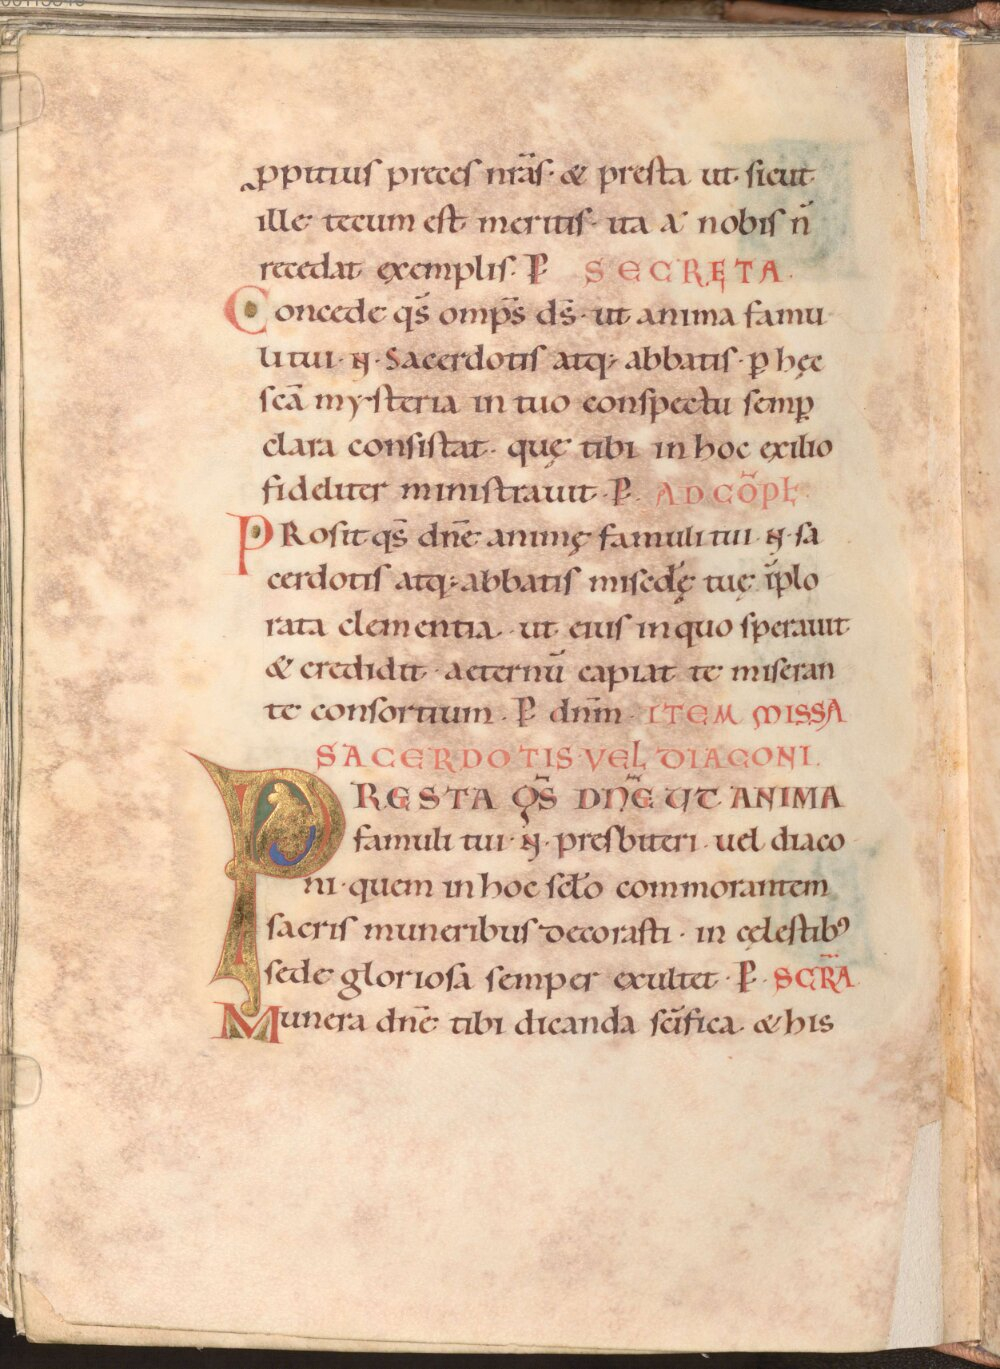 ꝓpitius preces nr̃as· & presta ut· sicut
ille tecum est meritis· ita a nobis ñ
recedat exemplis· P̶ SECRETA·
Concede qs̃ omp̃s ds̃· ut anima famu
li tui· N̄· Sacerdotis atq; abbatis· ꝑ hęc
scã mysteria in tuo conspectu semꝑ
clara consistat· quę tibi in hoc exilio
fideliter ministrauit· P̶ AD CÕPL̃·
PRosit qs̃ dñe animę famuli tui· N̄· sa
cerdotis atq; abbatis misc̃dę tuę ĩplo
rata clementia· ut eius in quo sperauit
& credidit· aeternũ capiat te miseran
te consortium· P̶ dñm· ITEM MISSA
SACERDOTIS VEL DIACONI·
PRESTA QS̃ DÑE UT ANIMA
famuli tui· N̄· presbiteri uel diaco
ni· quem in hoc sc̃lo commorantem
sacris muneribus decorasti· in cęlestibꝰ
sede gloriosa semper exultet· P̶ SCR̃A
Munera dñe tibi dicanda sc̃ifica· & his